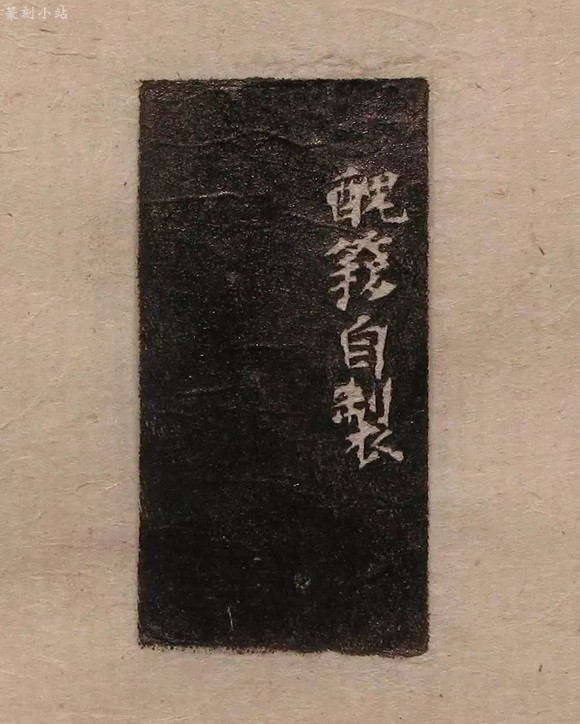 篆刻小站
醜簃自製